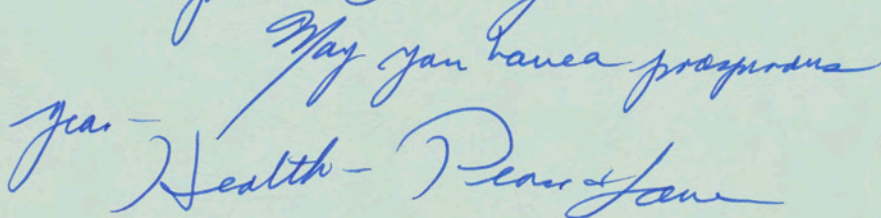 May you have a prosperous
year -
Health - Peace & Love